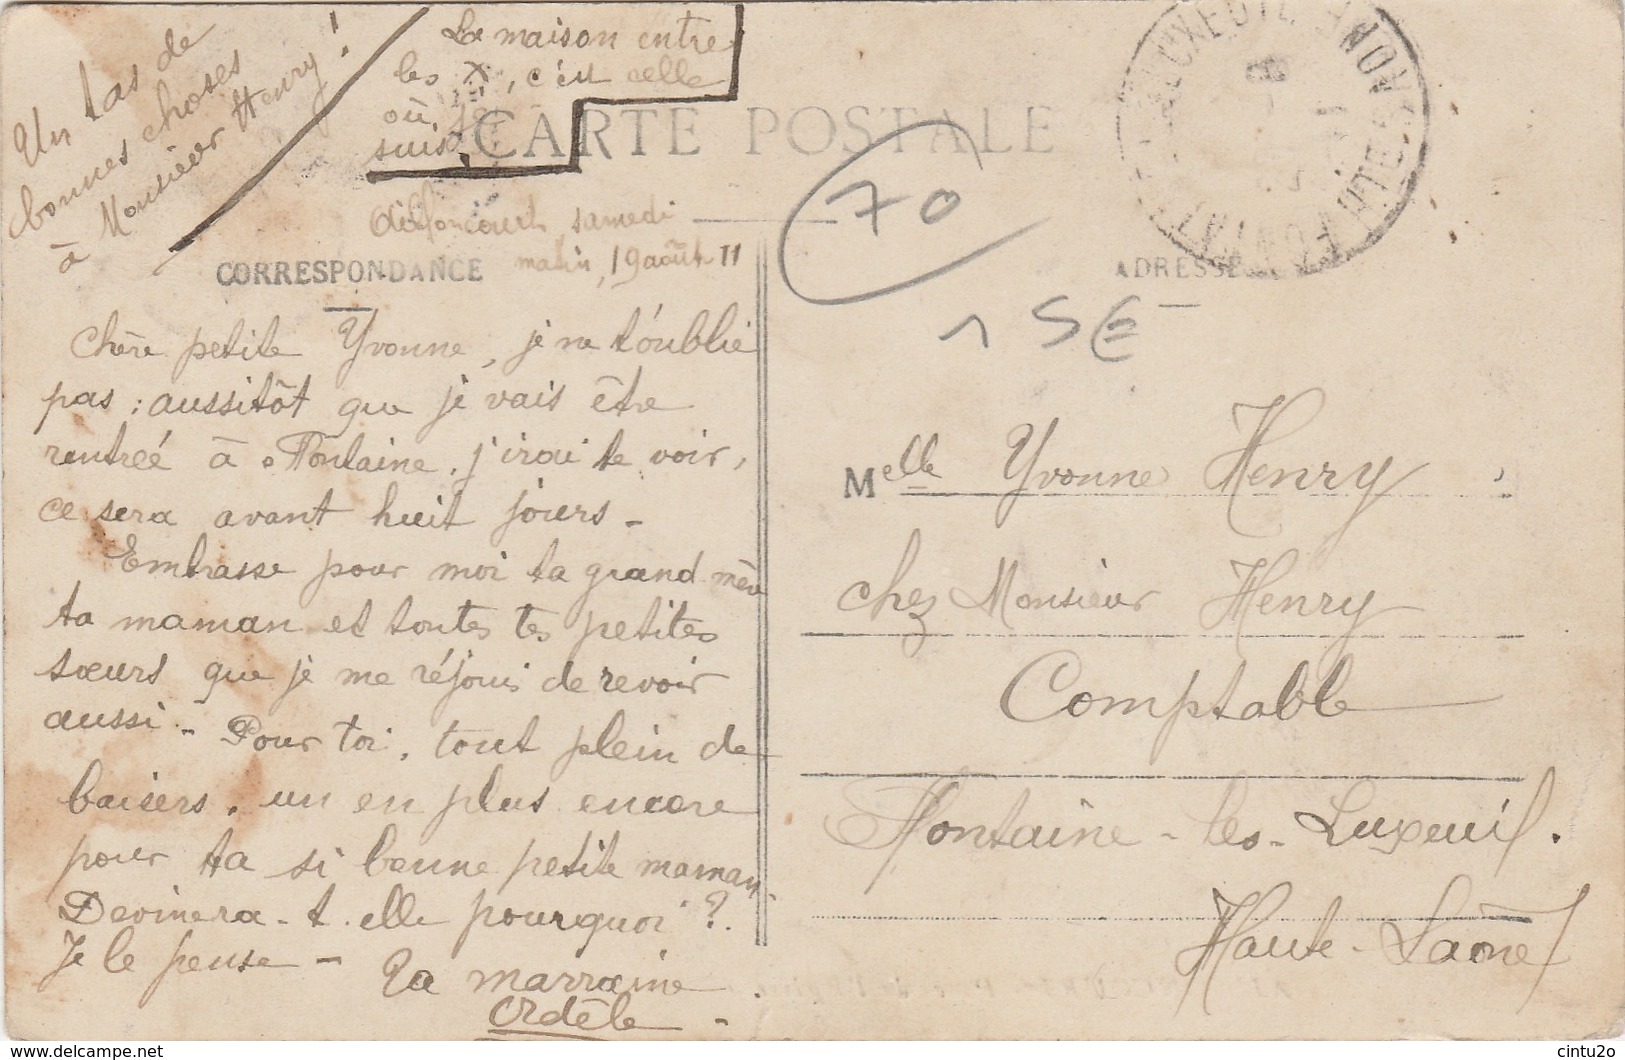 Un tas de
bonnes choses
à Monsieur Henry !
La maison entre
les X, c'est celle
où je
suis.
CARTE POSTALE
samedi
matin, 19 août 11
CORRESPONDANCE
ADRESSE
70
15€
Chère petite Yvonne, je ne t'oublie
pas ; aussitôt que je vais être
rentrée à Fontaine, j'irai te voir,
ce sera avant huit jours -
Embrasse pour moi ta grand mère
ta maman et toutes tes petites
sœurs que je me réjouis de revoir
aussi - Pour toi, tout plein de
baisers, un en plus encore
pour ta si bonne petite maman.
Devinera-t-elle pourquoi ?
Je le pense - Ta marraine
Adèle -
Melle Yvonne Henry
chez Monsieur Henry
Comptable
Fontaine-les-Luxeuil.
Haute-Saône
cintu2o
© www.delcampe.net